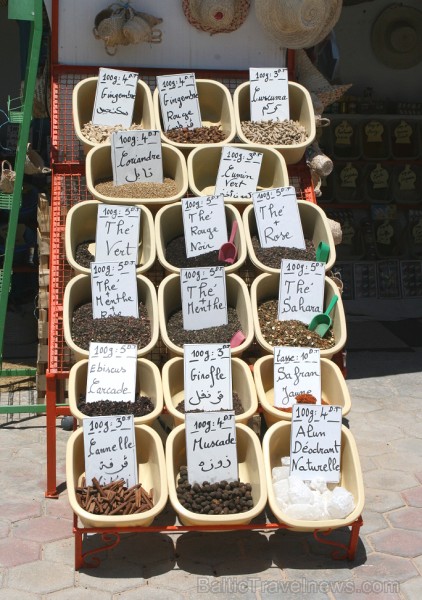 100g: 4 DT
Gingembre
سكنجبير
100g: 4 DT
Gingembre
Rouge
100g: 3 DT
Curcuma
كركم
100g: 4 DT
Coriandre
تابل
100g: 3 DT
Cumin
Vert
100g: 5 DT
Thé
Vert
100g: 5 DT
Thé
Rouge
Noir
100g: 5 DT
Thé
+
Rose
100g: 5 DT
Thé
Menthe
100g: 5 DT
Thé
+
Menthe
100g: 5 DT
Thé
Sahara
100g: 5 DT
Ebiscus
Carcade
100g: 3 DT
Girofle
قرنفل
tasse: 10 DT
Safran
Jaune
100g: 3 DT
Cannelle
قرفة
100g: 4 DT
Muscade
جوزة
100g: 4 DT
Alun
Déodrant
Naturelle
BalticTravelNews.com